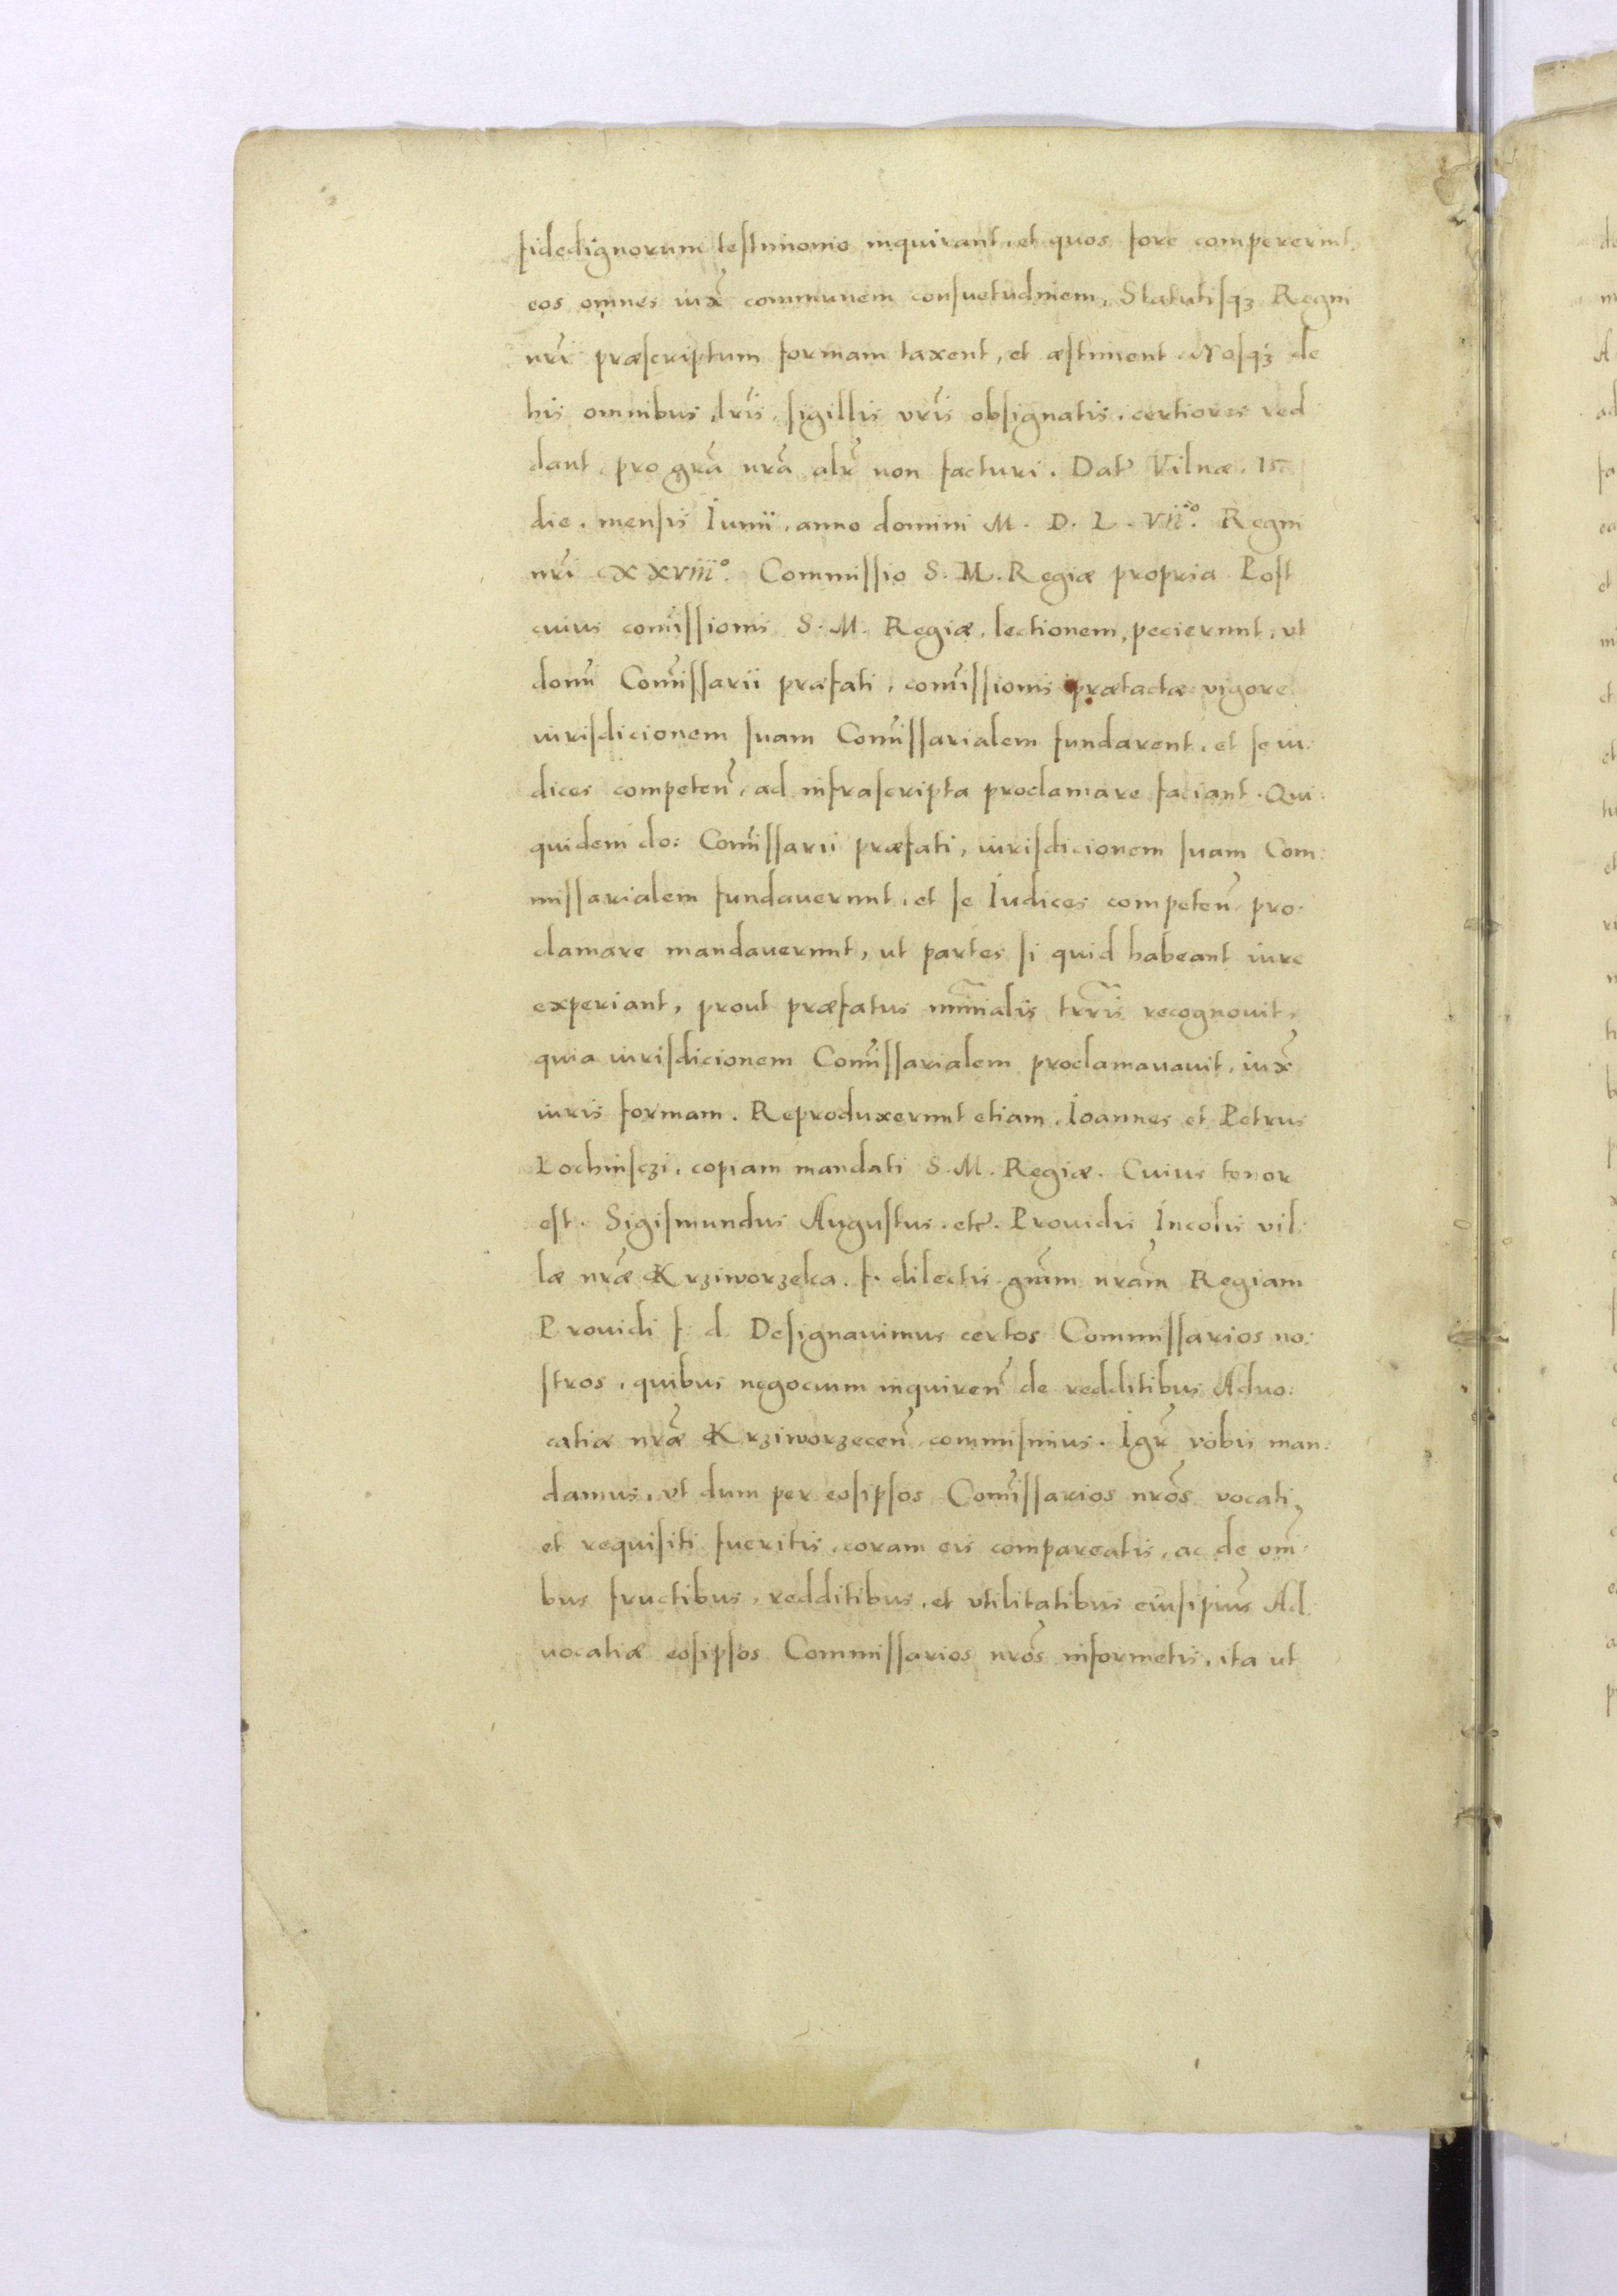 fidedignorum testimonio inquirant, et quos fore compererint,
eos omnes iux̃ communem consuetudinem, Statutisqꝫ Regni
nrĩ præscriptum formam taxent, et æstiment. Nosqꝫ de
his omnibus, lrĩs, sigillis vrĩs obsignatis, certiores red
dant, pro grã nrã alr̃ non facturi. Dat̃ Vilnæ. 15
die. mensis Iunii, anno domini M. D. L. VIIº. Regni
nrĩ XXVIIIº. Commissio S. M. Regiæ propria Post
cuius com̃issionis S. M. Regiæ, lectionem, pecierunt, ut
domĩ Com̃issarii præfati, com̃issionis prætactæ vigore
iurisdicionem suam Com̃issarialem fundarent, et se iu:
dices competeñ, ad infrascripta proclamare faciant. Qui:
quidem do: Com̃issarii præfati, iurisdicionem suam Com:
missarialem fundaverunt, et se Iudices competeñ pro:
clamare mandaverunt, ut partes si quid habeant iure
experiant, prout præfatus mĩnialis trr̃is recognouit,
quia iurisdicionem Com̃issarialem proclamauauit, iux̃
iuris formam. Reproduxerunt etiam, Ioannes et Petrus
Lochinsczi, copiam mandati S. M. Regiæ. Cuius tenor
est. Sigismundus Augustus. etc̃. Prouidis Incolis vil:
læ nræ̃ Krziworzeka. f. dilectis grãm nrãm Regiam
Prouidi f. d. Designauimus certos Commissarios no:
stros, quibus negocium inquireñ de redditibus Aduo:
catiæ nræ̃ Krziworzeceñ commisimus. Igr̃ vobis man:
damus, vt dum per eosipsos Com̃issarios nrõs vocati,
et requisiti fueritis, coram eis compareatis, ac de om̃:
bus fructibus, redditibus, et vtilitatibus eiusipsius Ad:
uocatiæ eosipsos Commissarios nrõs informetis, ita ut